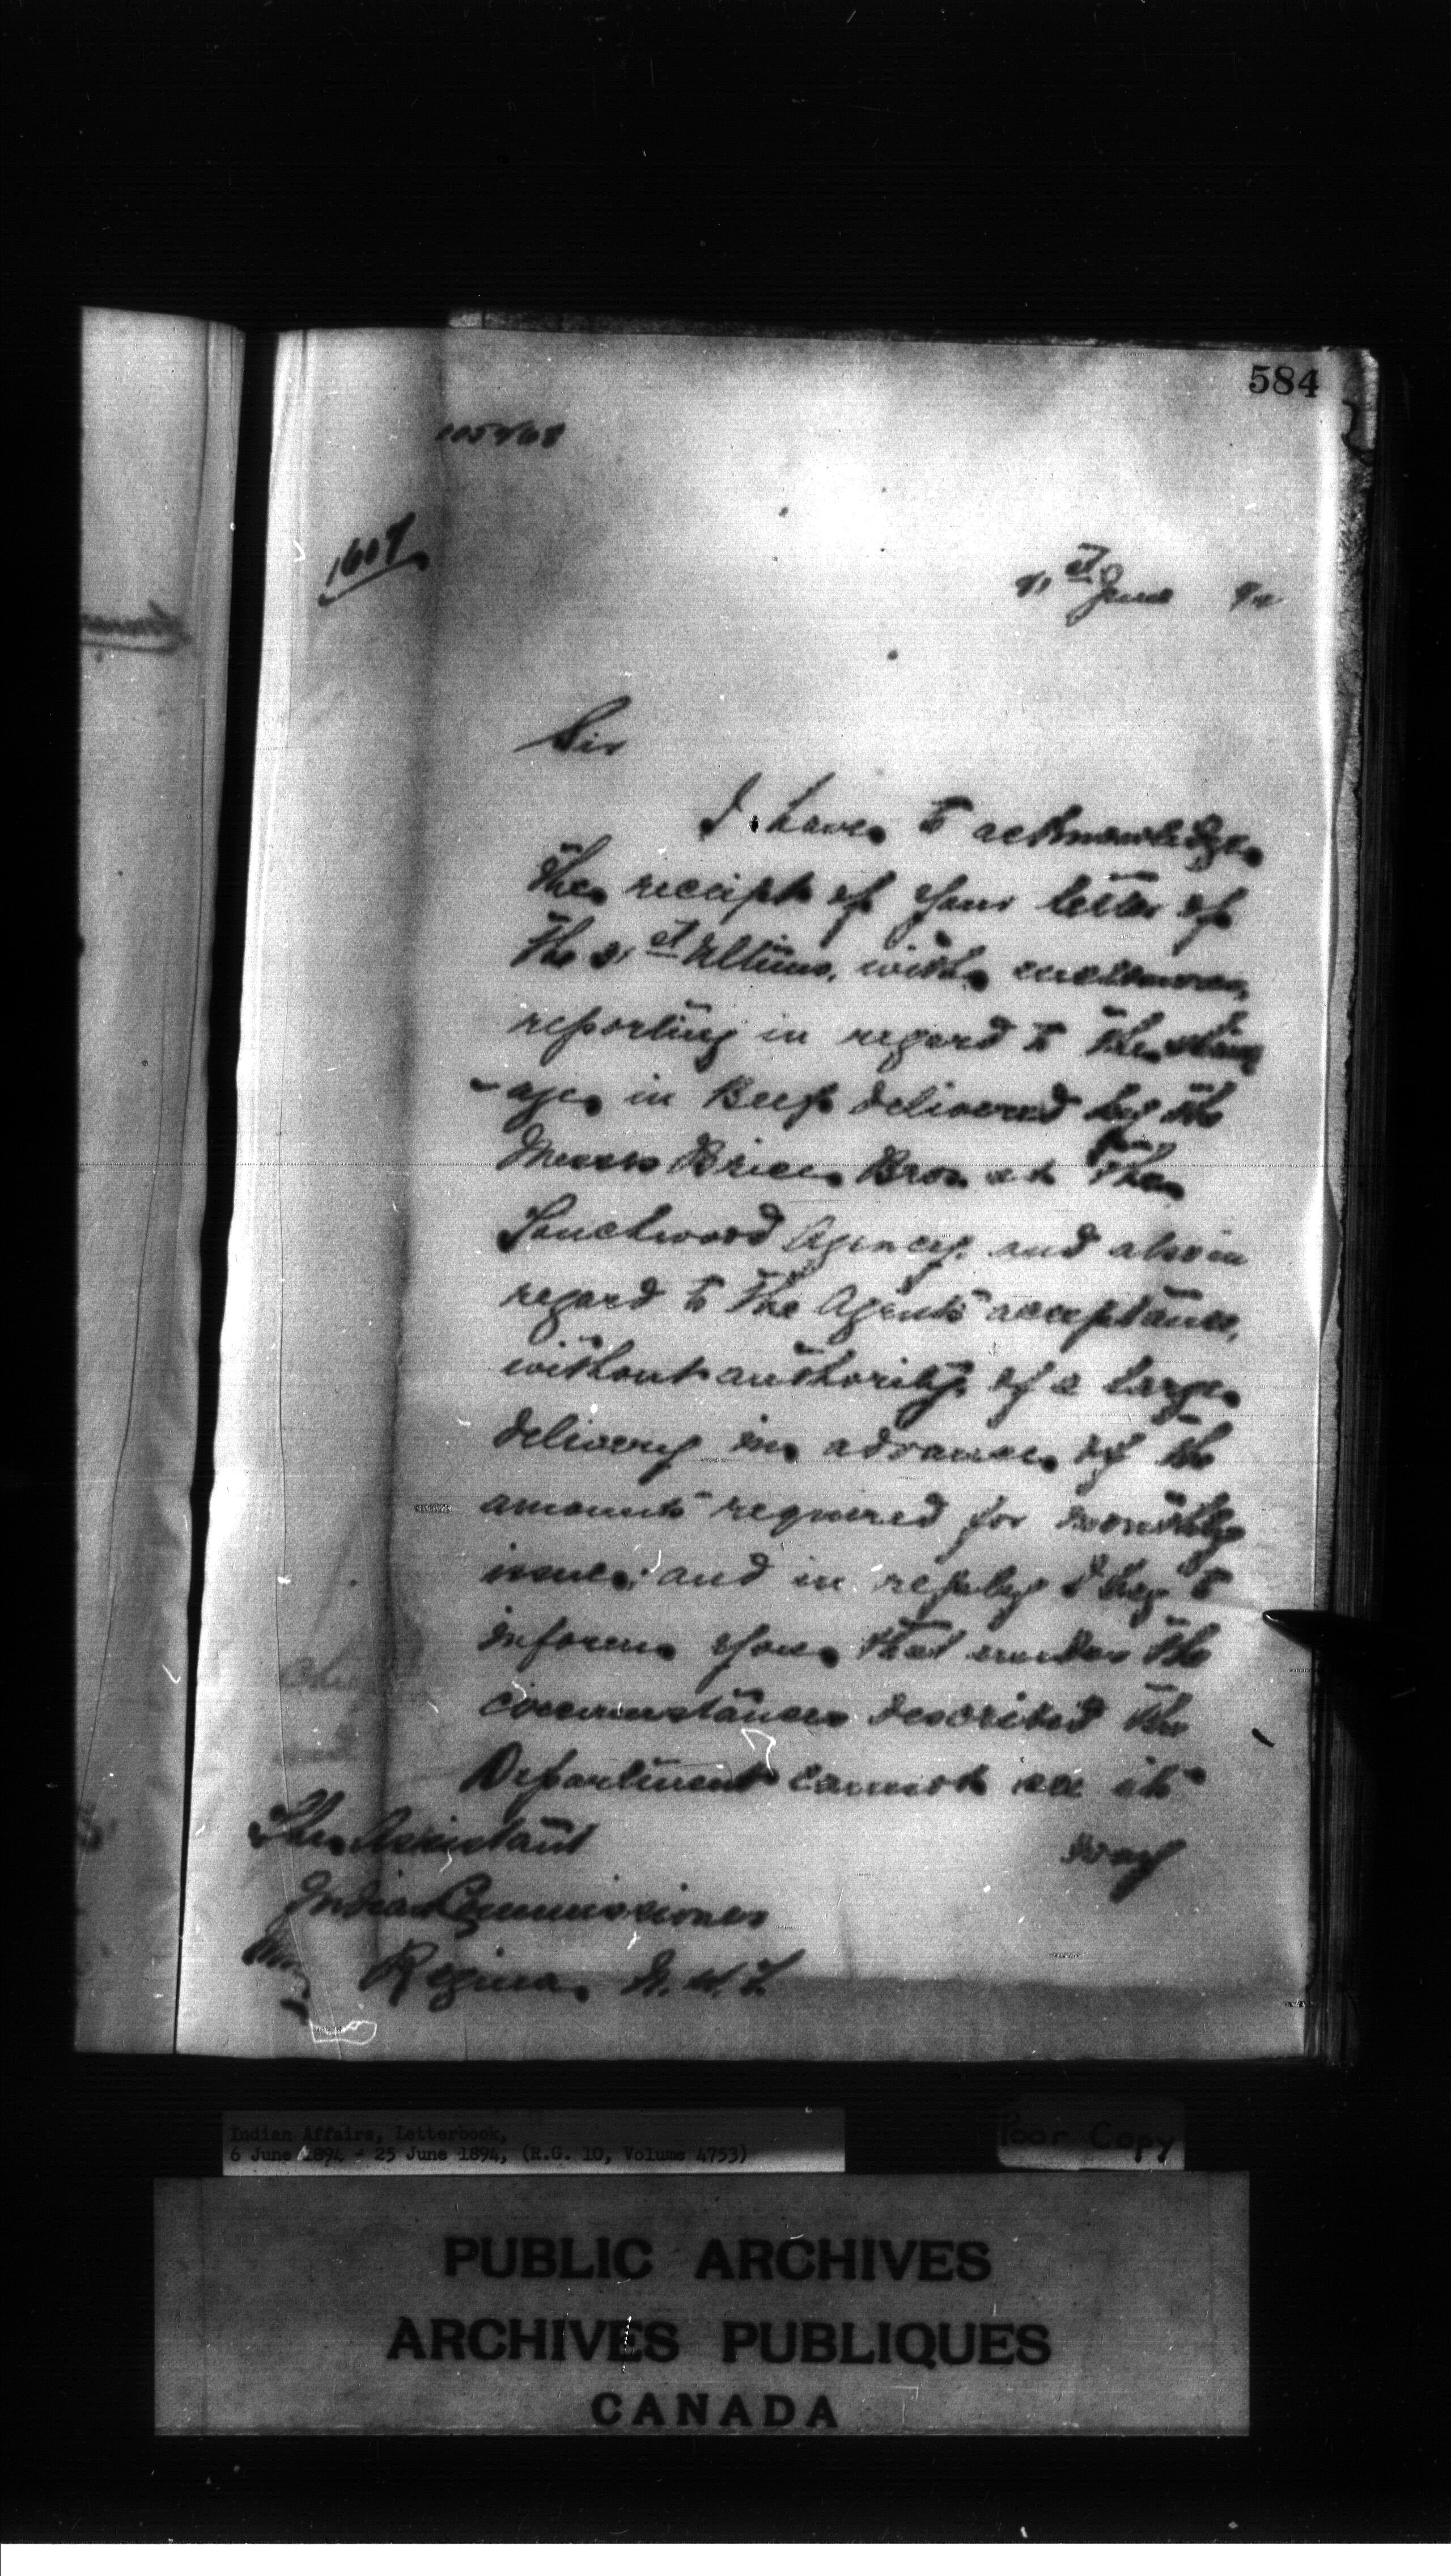 584
1609
21st June 94
Sir
I have to acknowledge
the receipt of your letter of
the 31st Ultimo, with enclosures,
reporting in regard to the
age in Beef delivered by the
Messrs Brice Bros. at the
Touchwood Agency, and also in
regard to the Agent's acceptance,
without authority of a large
delivery in advance of the
amounts required for monthly
issues; and in reply I beg to
inform you that under the
circumstances described the
Department cannot see its
way
The Assistant
Indian Commissioner
Regina, N.W.T.
Indian Affairs, Letterbook,
6 June 1894 - 25 June 1894, (R.G. 10, Volume 4753)
Poor Copy
PUBLIC ARCHIVES
ARCHIVES PUBLIQUES
CANADA